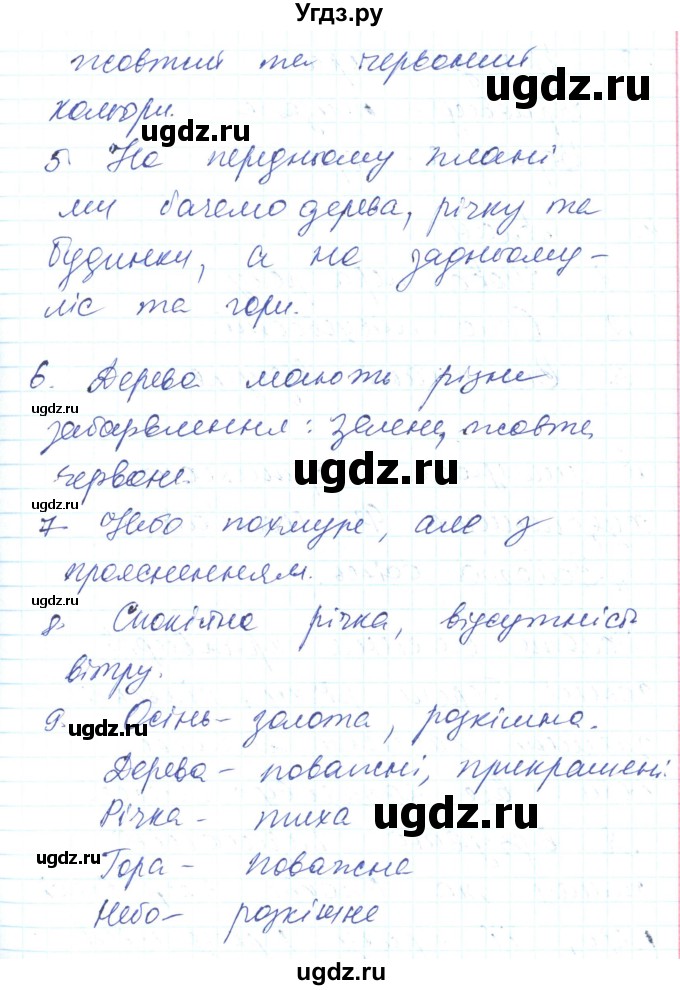 Угдз.ру
жовтий та червоний
ugdz.ru
кольори.
ugdz.ru
5. На передньому плані
ми бачемо дерева, річку та
будинки, а на задньому-
ліс та гори.
6. Дерева мають різне
ugdz.ru
забарвлення: зелене, жовте,
ugdz.ru
червоне.
7. Небо похмуре, але з
ugdz.ru
проясненням.
ugdz.ru
8. Спокійна річка, відсутність
вітру.
9. Осінь- золота, розкішна.
ugdz.ru
Дерева - поважні, прикрашені.
Річка - тиха
ugdz.ru
ugdz.ru
Гора - поважна
Небо- розкішне
ugdz.ru